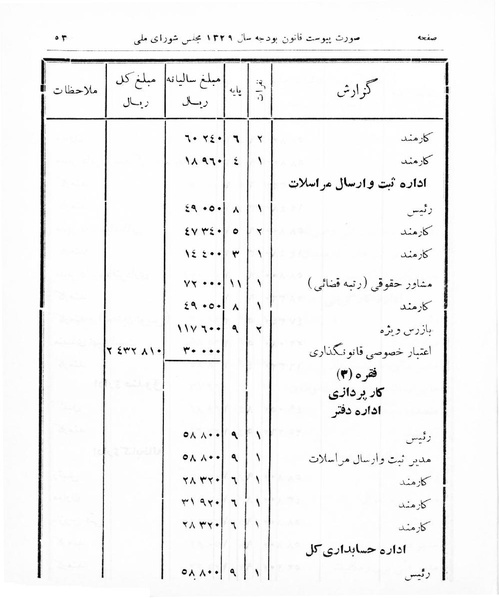 صفحه صورت پیوست قانون بودجه سال ۱۳۲۹ مجلس شورای ملی ۵۳
گزارش نفرات پایه مبلغ سالیانه ریال مبلغ کل ریال ملاحظات
کارمند ۲ ۶ ۶۰ ۲۴۰
کارمند ۱ ۴ ۱۸ ۹۶۰
اداره ثبت و ارسال مراسلات
رئیس ۱ ۸ ۴۹ ۰۵۰
کارمند ۲ ۵ ۴۷ ۳۴۰
کارمند ۱ ۳ ۱۴ ۴۰۰
مشاور حقوقی (رتبه قضائی) ۱ ۱۱ ۷۲ ۰۰۰
کارمند ۱ ۸ ۴۹ ۰۵۰
بازرس ویژه ۲ ۹ ۱۱۷ ۶۰۰
اعتبار خصوصی قانونگذاری ۳۰ ۰۰۰ ۲ ۴۳۲ ۸۱۰
فقره (۳)
کارپردازی
اداره دفتر
رئیس ۱ ۹ ۵۸ ۸۰۰
مدیر ثبت وارسال مراسلات ۱ ۹ ۵۸ ۸۰۰
کارمند ۱ ۶ ۲۸ ۳۲۰
کارمند ۱ ۶ ۳۱ ۹۲۰
کارمند ۱ ۶ ۲۸ ۳۲۰
اداره حسابداری کل
رئیس ۱ ۹ ۵۸ ۸۰۰